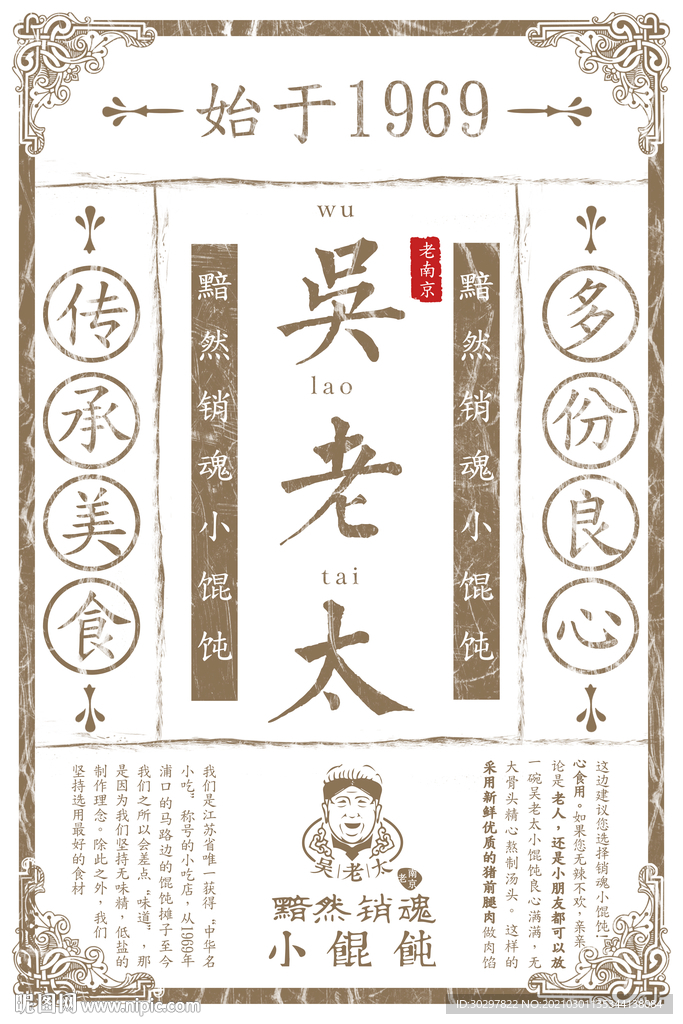 始于1969
wu
吳
老南京
lao
老
tai
太
黯然销魂小馄饨
黯然销魂小馄饨
传承美食
多份良心
这边建议您选择销魂小馄饨!
心食用。如果您无辣不欢，亲亲，
论是老人，还是小朋友都可以放
一碗吴老太小馄饨良心满满，无
大骨头精心熬制汤头。这样的
采用新鲜优质的猪前腿肉做肉馅
吴|老|太
老南京
黯然销魂
小馄饨
我们是江苏省唯一获得“中华名
小吃”称号的小吃店，从1969年
浦口的马路边的馄饨摊子至今
我们之所以会差点“味道”，那
是因为我们坚持无味精，低盐的
制作理念。除此之外，我们
坚持选用最好的食材
昵图网 www.nipic.com
ID:30297822 NO:20210301135344138084